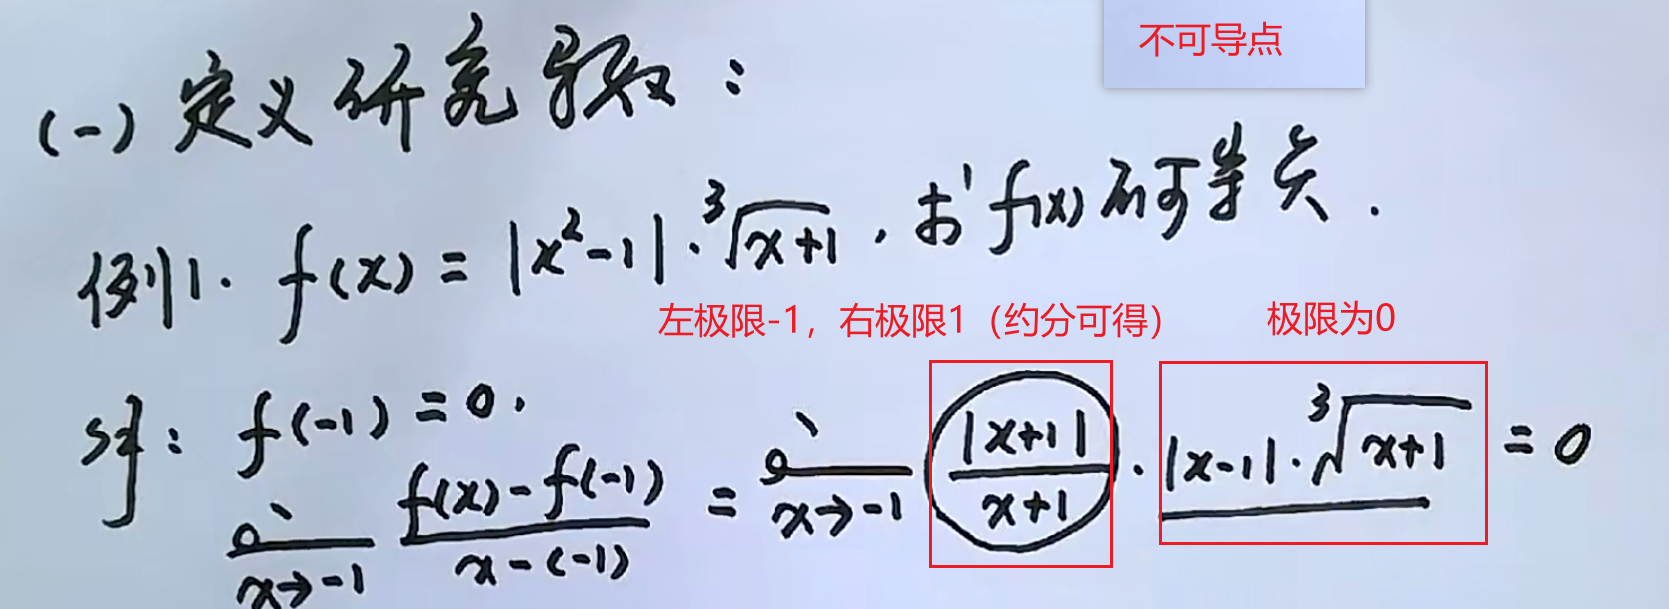 不可导点
(一) 定义研究导数：
例1. f(x) = |x²-1|·∛(x+1), 求 f(x) 不可导点.
左极限-1，右极限1（约分可得） 极限为0
解: f(-1) = 0.
lim x→-1 (f(x)-f(-1))/(x-(-1)) = lim x→-1 |x+1|/(x+1) · |x-1|·∛(x+1) = 0